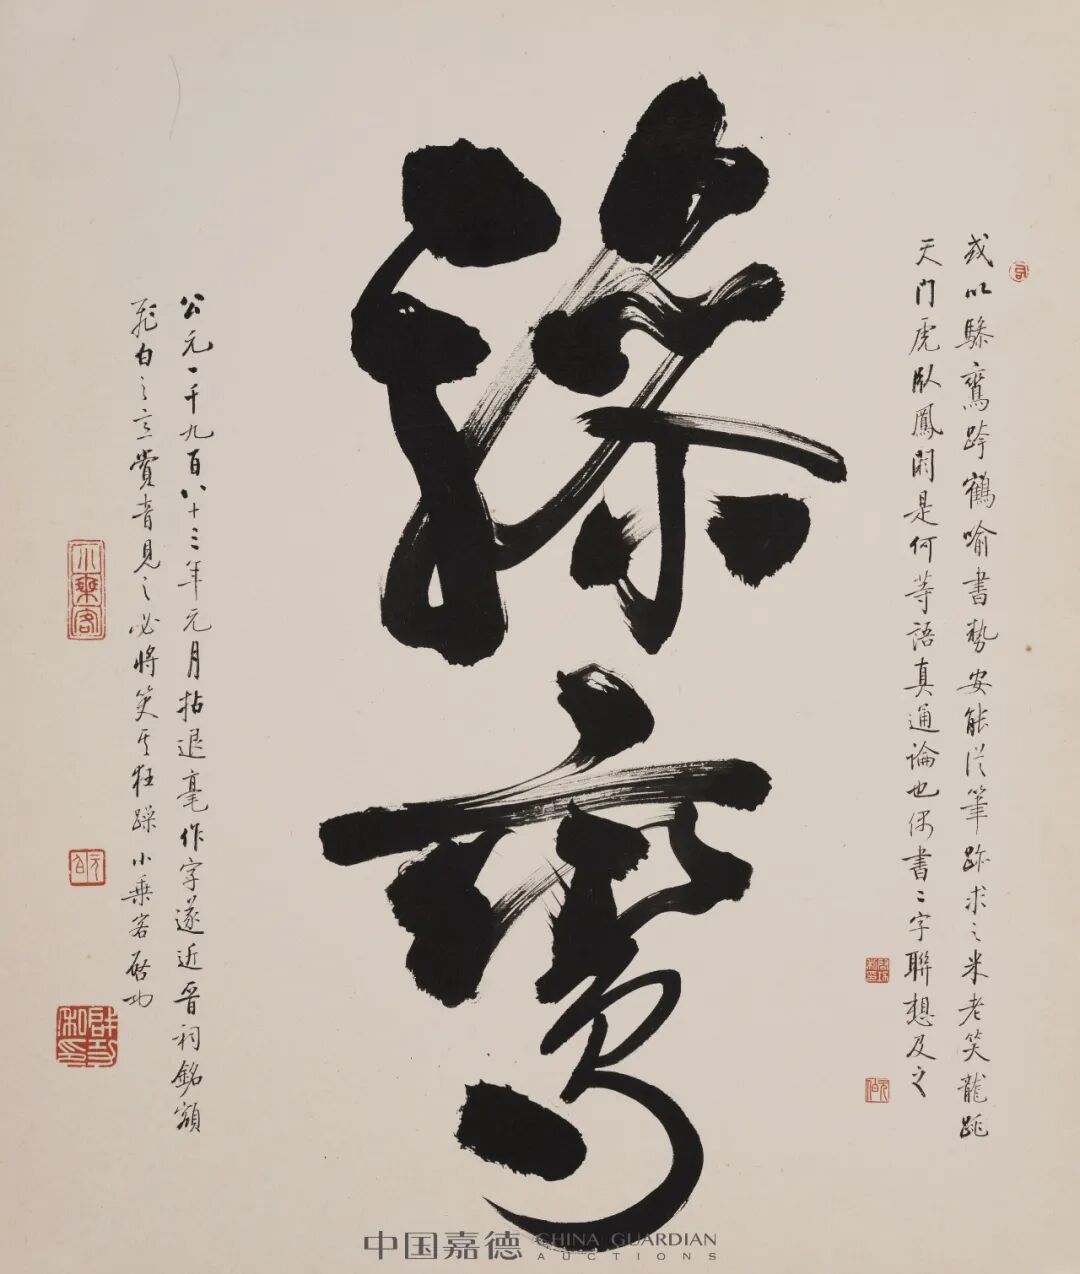 或以驂鸞跨鶴喻書勢安能從筆跡求之米老笑龍跳
天門虎臥鳳閣是何等語真通論也偶書二字聯想及之
驂鸞
公元一千九百八十三年元月拈退毫作字遂近晉祠銘額
飛白之意賞音見之必將笑其狂躁小乘客啟功
小乘客
元白
啟功私印
中国嘉德 CHINA GUARDIAN
AUCTIONS